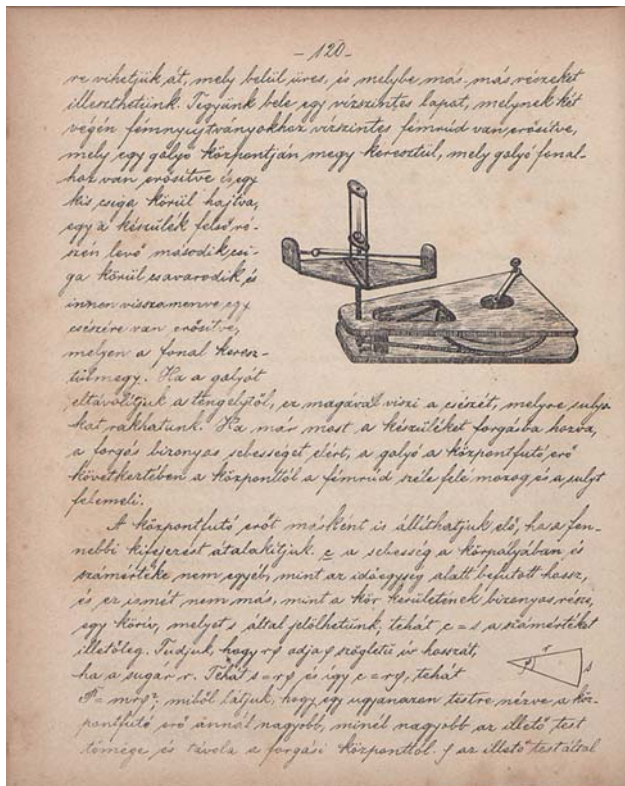 - 120 -
re vihetjük át, mely belül üres, és melybe más-más részeket
illeszthetünk. Tegyünk bele egy vízszintes lapat, melynek két
végén fémnyujtványokhoz vízszintes fémrúd van erősítve,
mely egy galyó központján megy keresztül, mely galyó fonal-
hoz van erősítve és egy
kis csiga körül hajtva,
egy a készülék felső ré-
szén levő második csi-
ga körül csavarodik és
innen visszamenve egy
csészére van erősítve,
melyen a fonal keresz-
tülmegy. Ha a galyót
eltávolítjuk a tengelytől, ez magával viszi a csészét, melyre sulyo-
kat rakhatunk. Ha már most a készüléket forgásba hozva,
a forgás bizonyos sebességet elért, a galyó a központfutó erő
következtében a központtól a fémrúd széle felé mozog és a sulyt
felemeli.
A központfutó erőt másként is állíthatjuk elő, ha a fen-
nebbi kifejezést átalakítjuk. c a sebesség a körpályában és
számértéke nem egyéb, mint az időegység alatt befutott hossz,
és ez ismét nem más, mint a kör kerületének bizonyos része,
egy körív, melyet s által jelölhetünk, tehát c = s a számértéket
illetőleg. Tudjuk, hogy rφ adja φ szögletű ív hosszát,
ha a sugár r. Tehát s = rφ és így c = rφ, tehát
φ r s
P = mrφ²; miből látjuk, hogy egy ugyanazon testre nézve a köz-
pontfutó erő annál nagyobb, minél nagyobb az illető test
tömege és távola a forgási központtól. φ az illető test által